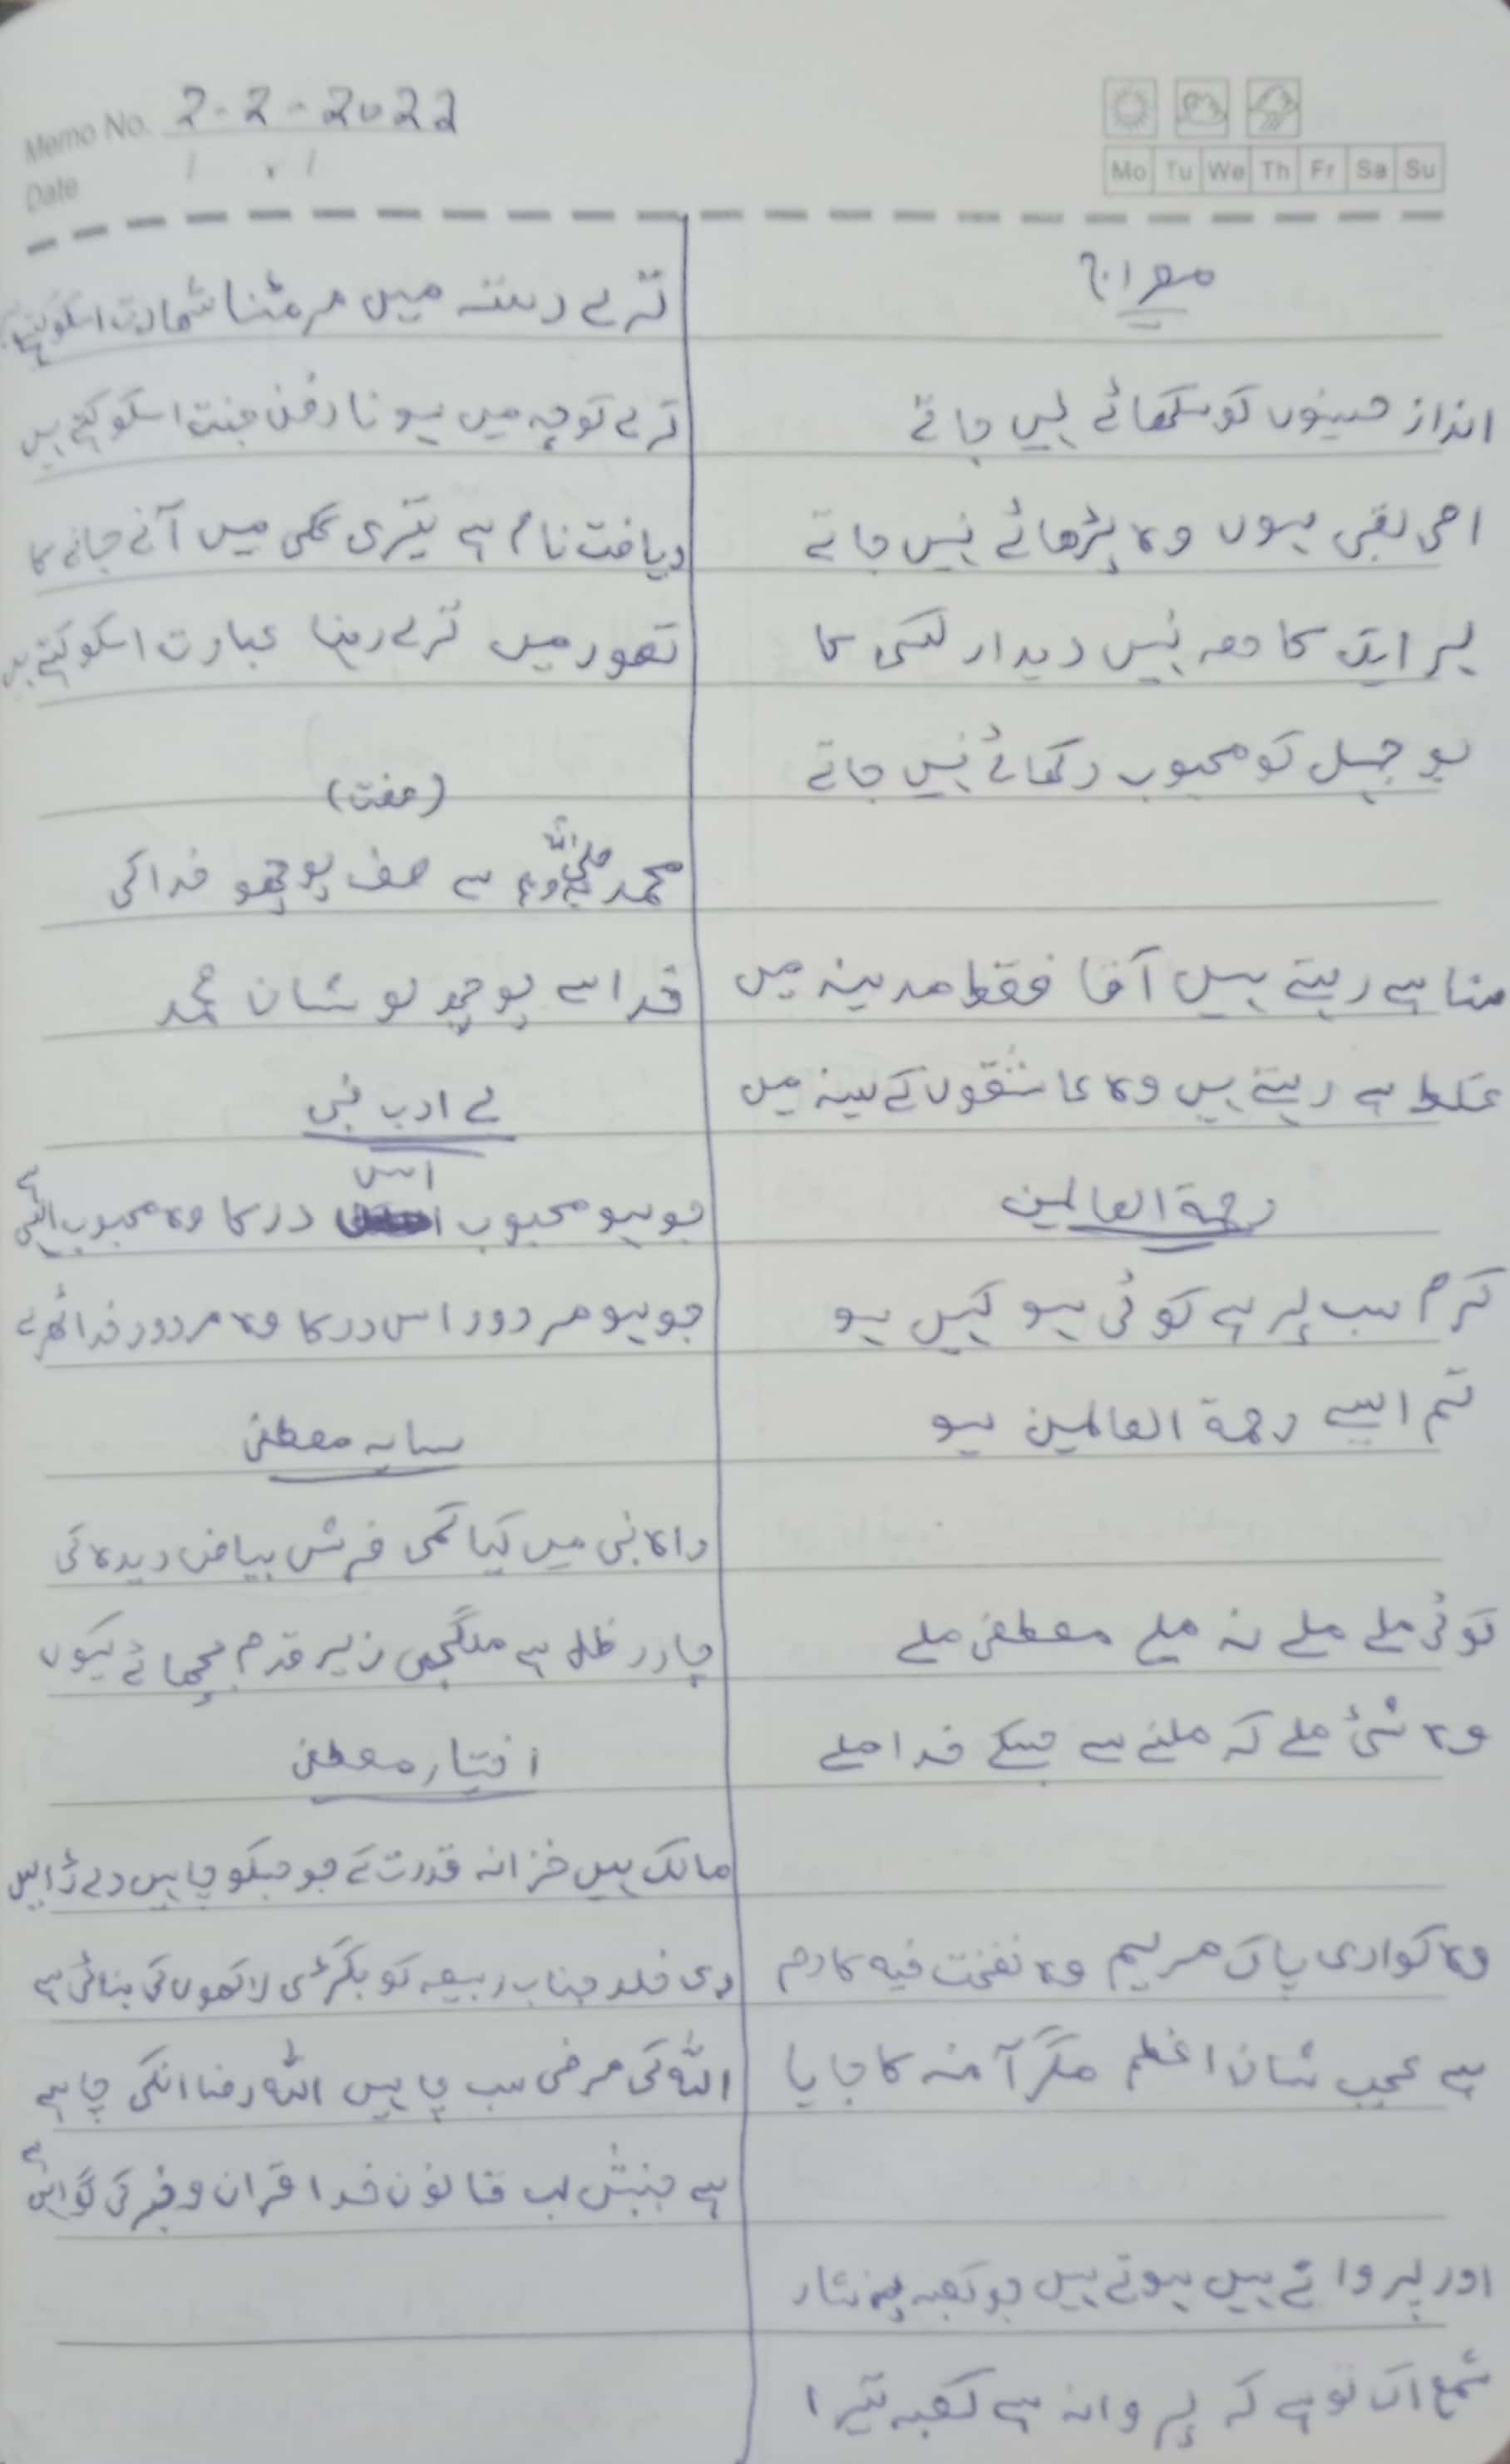 Memo No. 2-2-2022
Date / /
Mo Tu We Th Fr Sa Su
معراج
انداز حسینوں کو سکھائے نہیں جاتے
امی لقبی ہوں وہ پڑھائے نہیں جاتے
ہر ایک کا حصہ نہیں دیدار کسی کا
بوجہل کو محبوب دکھائے نہیں جاتے
سنا ہے رہتے ہیں آقا فقط مدینہ میں
غلط ہے رہتے ہیں وہ عاشقوں کے سینہ میں
رحمۃ العالمین
کرم سب پر ہے کوئی ہو کہیں ہو
تم ایسے رحمۃ العالمین ہو
کوئی ملے ملے نہ ملے مصطفیٰ ملے
وہ شئ ملے کہ ملنے سے جسکے خدا ملے
وہ کنواری پاک مریم وہ نفخت فیہ کا دم
ہے عجب شان اعظم مگر آمنہ کا جایا
اور پروانے ہیں ہوتے ہیں جو کعبہ پہ نثار
شمع اک تو ہے کہ پروانہ ہے کعبہ تیرا
ترے رستہ میں مر مٹنا شہادت اسکو کہتے
ترے کوچہ میں ہونا دفن جنت اسکو کہتے ہیں
ریاضت نام ہے تیری گلی میں آنے جانے کا
تصور میں ترے رہنا عبادت اسکو کہتے ہیں
(صفت)
محمد صلی اللہ علیہ وسلم سے صف پوچھو خدا کی
خدا سے پوچھ لو شان محمد
بے ادب نبی
جو ہو محبوب اس در کا وہ محبوب الہی ہے
جو ہو مردود اس در کا وہ مردود خدا ٹھرے
سایہ مصطفیٰ
راہ نبی میں کیا کمی فرش بیاض دیدہ کی
چادر ظل ہے ملگجی زیر قدم بچھائے کیوں
اختیار مصطفیٰ
مالک ہیں خزانہ قدرت کے جو جسکو چاہیں دے ڈالیں
دی خلد جناب ربیعہ کو بگڑی لاکھوں کی بنائی ہے
اللہ کی مرضی سب چاہیں اللہ رضا انکی چاہے
ہے جنبش لب قانون خدا قران و خبر کی گواہی ہے